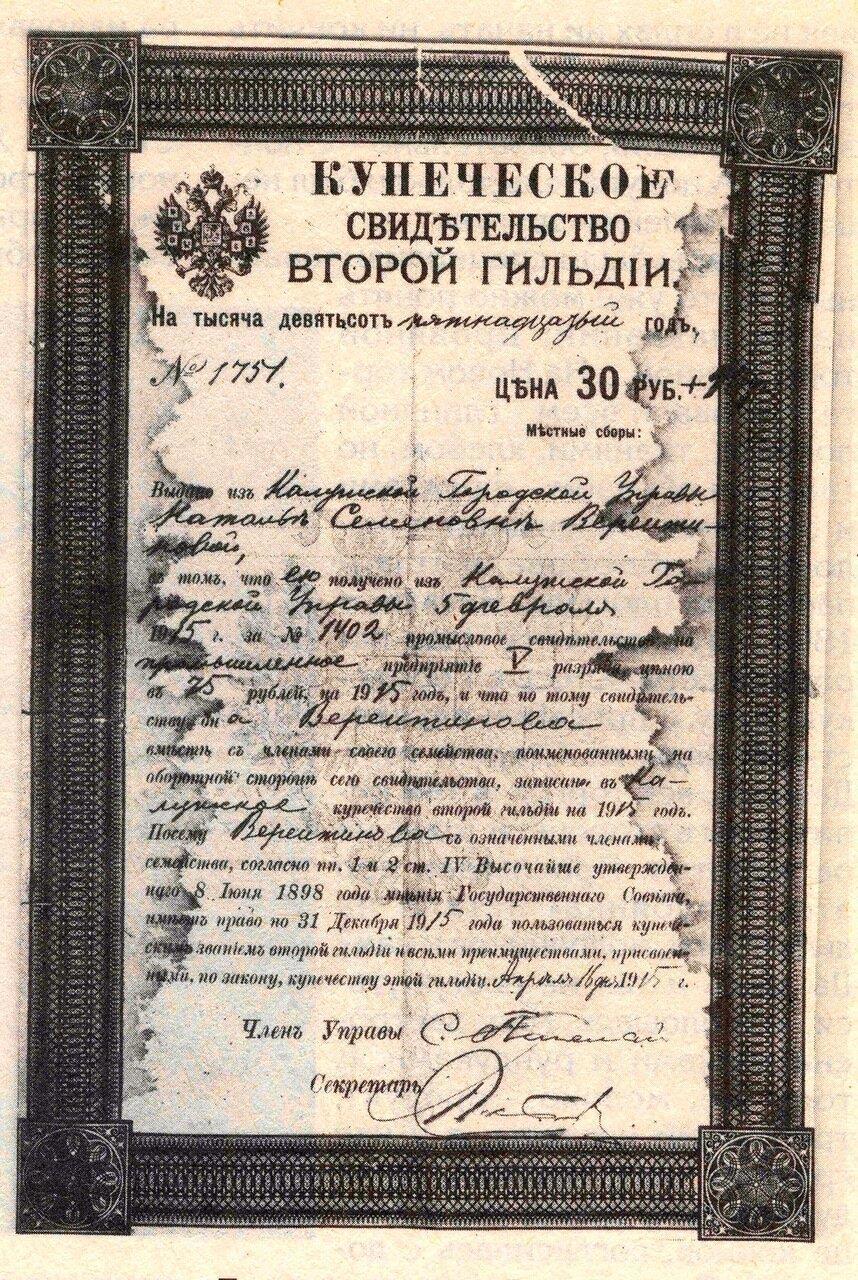 КУПЕЧЕСКОЕ
СВИДѢТЕЛЬСТВО
ВТОРОЙ ГИЛЬДІИ.
На тысяча девятьсотъ пятнадцатый годъ.
№ 1751.
ЦѢНА 30 РУБ.
Мѣстные сборы:
Выдано изъ Калужской Городской Управы
Натальѣ Семеновнѣ Верейти-
новой,
въ томъ, что ею получено изъ Калужской Го-
родской Управы 5 февраля
1915 г. за № 1402 промысловое свидѣтельство на
промышленное предпріятіе V разряда цѣною
въ 75 рублей, на 1915 годъ, и что по тому свидѣтель-
ству она Верейтинова
вмѣстѣ съ членами своего семейства, поименованными на
оборотной сторонѣ сего свидѣтельства, записана въ Ка-
лужское купечество второй гильдіи на 1915 годъ.
Посему Верейтинова съ означенными членами
семейства, согласно пп. 1 и 2 ст. IV Высочайше утвержден-
наго 8 Іюня 1898 года мнѣнія Государственнаго Совѣта,
имѣетъ право по 31 Декабря 1915 года пользоваться купече-
скимъ званіемъ второй гильдіи и всѣми преимуществами, присвоен-
ными, по закону, купечеству этой гильдіи. Апрѣля 16 дня 1915 г.
Членъ Управы
Секретарь